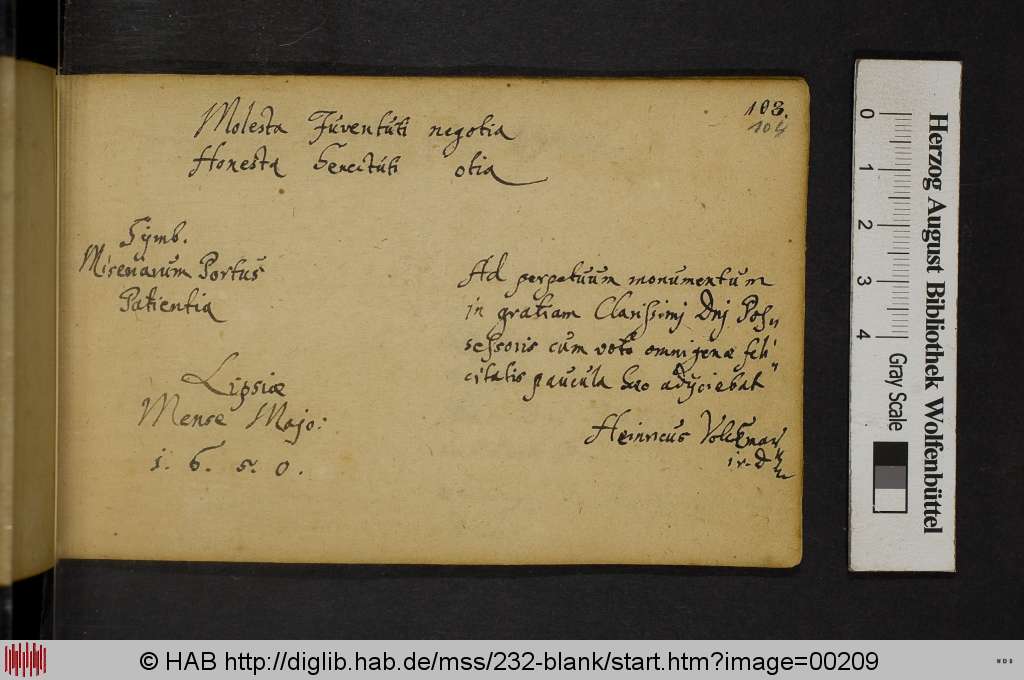 103.
104
Molesta Juventuti negotia
Honesta Senectuti otia
Symb.
Miseriarum Portus
Patientia
Lipsiæ
Mense Majo:
1. 6. 5. 0.
Ad perpetuum monumentum
in gratiam Clarissimj Dnj Pos„
sessoris cum voto omnigenæ feli„
citatis paucula hæc adijciebat
Heinricus Volckmar
Herzog August Bibliothek Wolfenbüttel
0 1 2 3 4
Gray Scale
© HAB http://diglib.hab.de/mss/232-blank/start.htm?image=00209